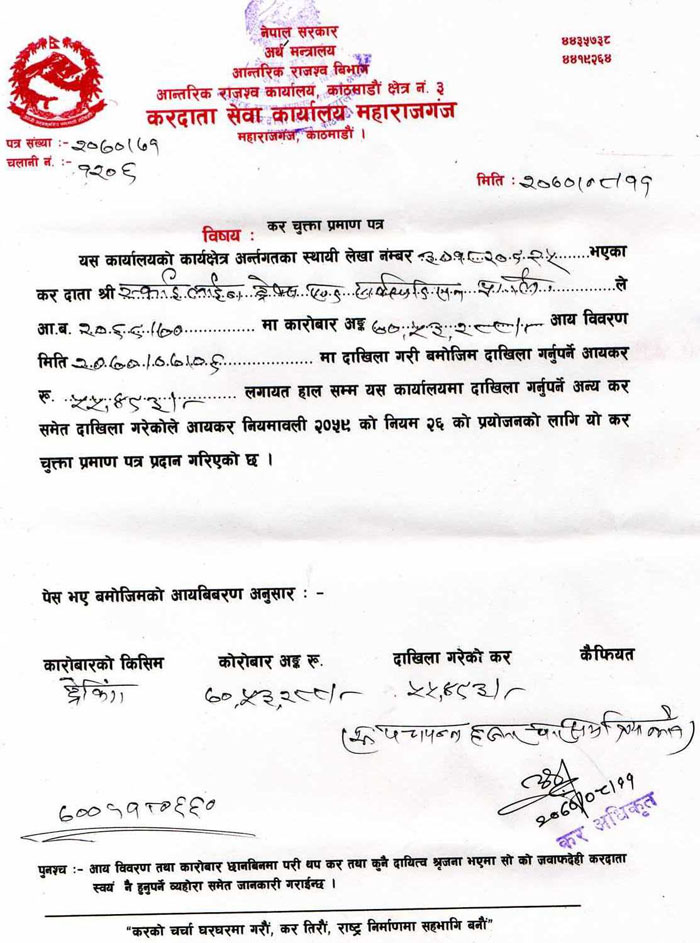 नेपाल सरकार
अर्थ मन्त्रालय
आन्तरिक राजश्व विभाग
आन्तरिक राजश्व कार्यालय, काठमाडौं क्षेत्र नं. ३
करदाता सेवा कार्यालय महाराजगंज
महाराजगंज, काठमाडौं ।
४४३५७३८
४४१९२६४
पत्र संख्या :- २०७०/७१
चलानी नं. :- १२०६
मिति : २०७०/०८/११
विषय : कर चुक्ता प्रमाण पत्र
यस कार्यालयको कार्यक्षेत्र अर्न्तगतका स्थायी लेखा नम्बर भएका
कर दाता श्री ले
आ.ब. मा कारोबार अङ्क आय विवरण
मिति मा दाखिला गरी बमोजिम दाखिला गर्नुपर्ने आयकर
रू. ५५,४९३/- लगायत हाल सम्म यस कार्यालयमा दाखिला गर्नुपर्ने अन्य कर
समेत दाखिला गरेकोले आयकर नियमावली २०५९ को नियम २६ को प्रयोजनको लागि यो कर
चुक्ता प्रमाण पत्र प्रदान गरिएको छ ।
पेस भए बमोजिमको आयबिबरण अनुसार : -
कारोबारको किसिम कोरोबार अङ्क रू. दाखिला गरेको कर कैफियत
ट्रेकिंग ५५,४९३/-
२०७०/०८/११
कर अधिकृत
पुनश्च :- आय विवरण तथा कारोबार छानबिनमा परी थप कर तथा कुनै दायित्व श्रृजना भएमा सो को जवाफदेही करदाता
स्वयं नै हुनुपर्ने व्यहोरा समेत जानकारी गराईन्छ ।
"करको चर्चा घरघरमा गरौं, कर तिरौं, राष्ट्र निर्माणमा सहभागि बनौं"